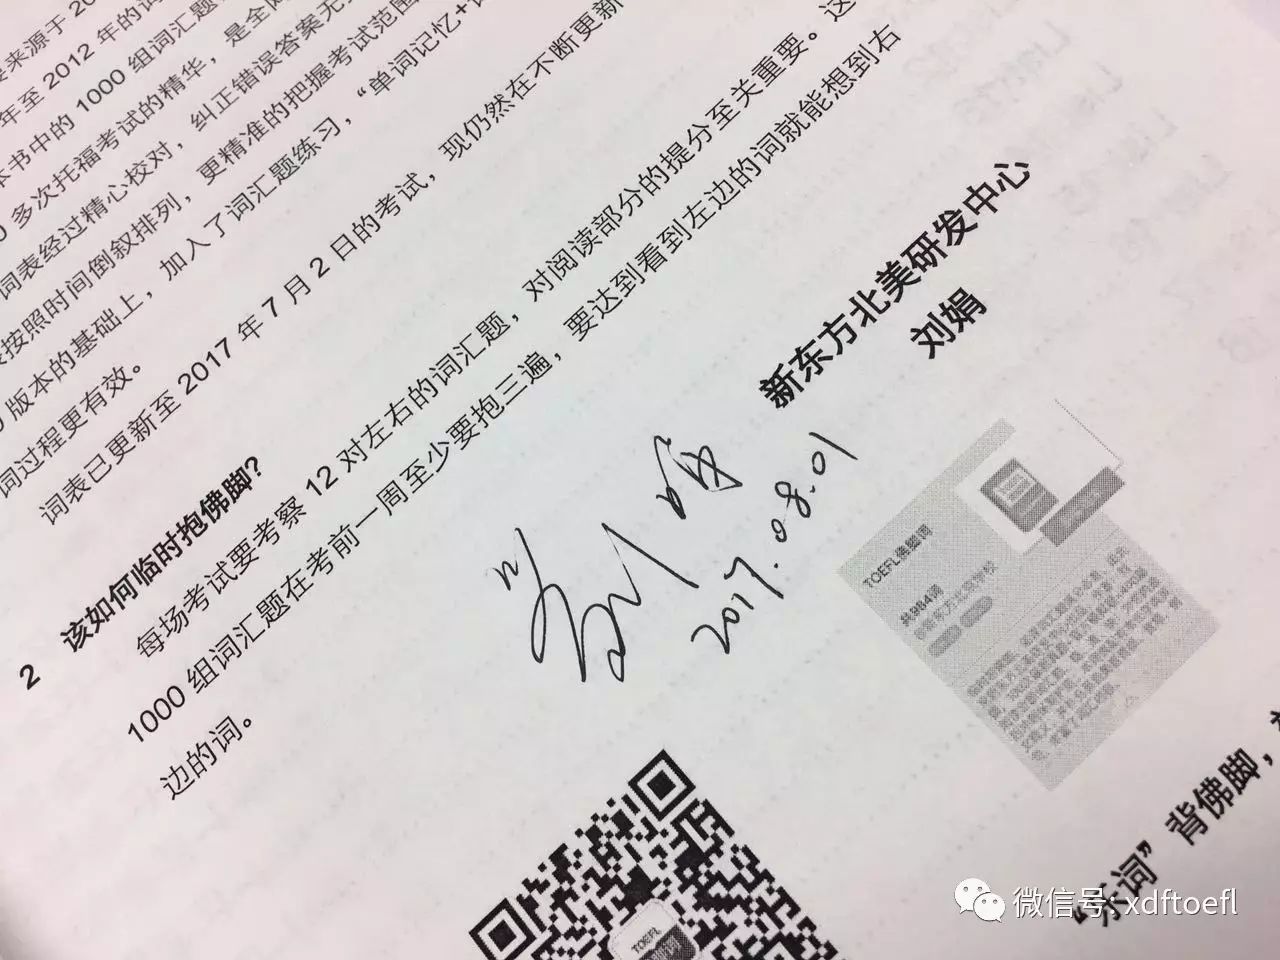 要来源于 20
年至 2012 年的词
本书中的 1000 组词汇题
0 多次托福考试的精华，是全网
词表经过精心校对，纠正错误答案无
按照时间倒叙排列，更精准的把握考试范围
版本的基础上，加入了词汇题练习，“单词记忆+
词过程更有效。
词表已更新至 2017 年 7 月 2 日的考试，现仍然在不断更新
2 该如何临时抱佛脚？
每场考试要考察 12 对左右的词汇题，对阅读部分的提分至关重要。这
1000 组词汇题在考前一周至少要抱三遍，要达到看到左边的词就能想到右
边的词。
新东方北美研发中心
刘娟
刘娟
2017.08.01
TOEFL
共384词
TOEFL
“乐词”背佛脚，
微信号: xdftoefl